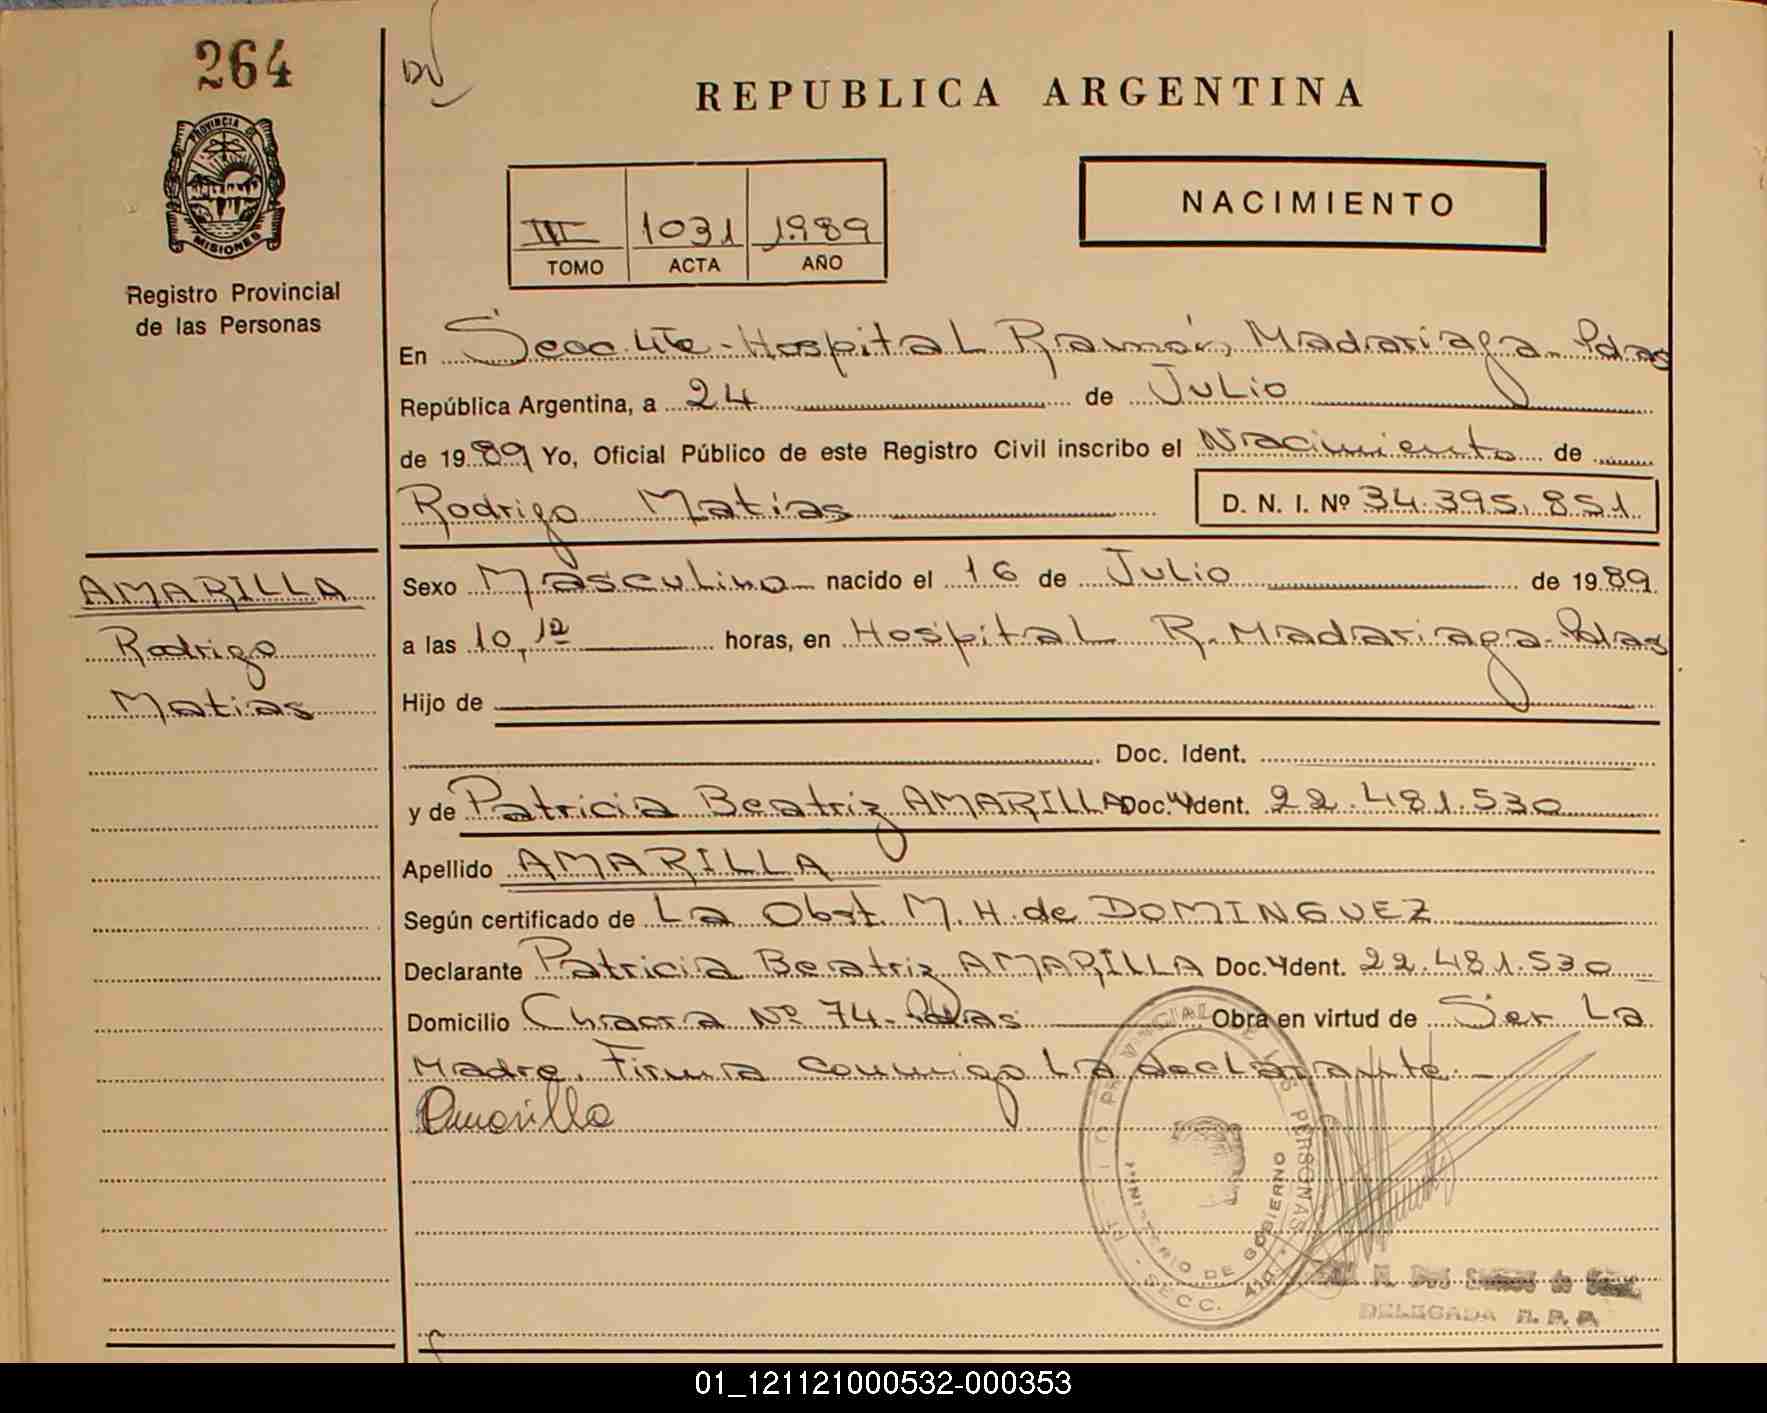 264
PROVINCIA DE
MISIONES
Registro Provincial
de las Personas
REPUBLICA ARGENTINA
III 1031 1989
TOMO ACTA AÑO
NACIMIENTO
En Secc 4ta - Hospital Ramón Madariaga - Pdas
República Argentina, a 24 de Julio
de 1989 Yo, Oficial Público de este Registro Civil inscribo el Nacimiento de
Rodrigo Matias D. N. I. Nº 34.395.851
AMARILLA
Rodrigo
Matias
Sexo Masculino nacido el 16 de Julio de 1989.
a las 10,10 horas, en Hospital R. Madariaga - Pdas
Hijo de
Doc. Ident.
y de Patricia Beatriz AMARILLA Doc. Ident. 22.481.530
Apellido AMARILLA
Según certificado de La Obst. M. H. de DOMINGUEZ
Declarante Patricia Beatriz AMARILLA Doc. Ident. 22.481.530
Domicilio Chacra Nº 74 - Pdas Obra en virtud de Ser La
Madre. Firma conmigo La declarante. -
Amarilla
PROVINCIAL DE LAS PERSONAS
MINISTERIO DE GOBIERNO
SECC. 4ta
DELEGADA R. P. P.
01_121121000532-000353